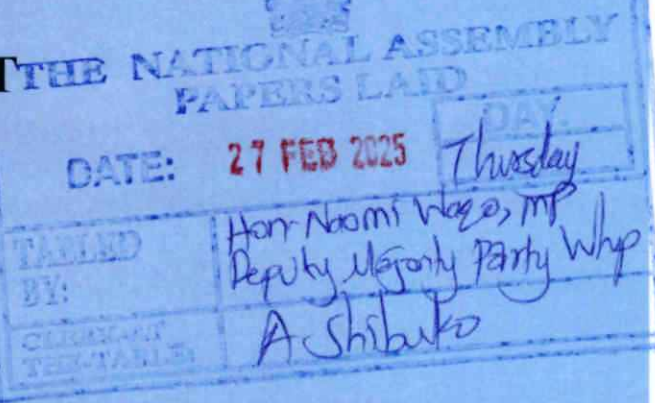 THE NATIONAL ASSEMBLY
PAPERS LAID
DATE: 27 FEB 2025
DAY.
Thursday
TABLED BY:
Hon. Naomi Waqo, MP
Deputy Majority Party Whip
CLERK-AT THE-TABLE:
A. Shibuko